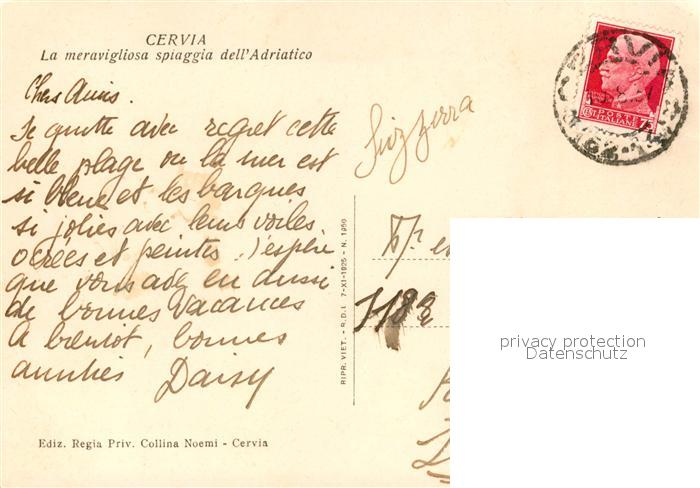 CERVIA
La meravigliosa spiaggia dell'Adriatico
POSTE
ITALIANE
75
Chers Amis.
Je quitte avec regret cette
belle plage ou la mer est
si bleue et les barques
si jolies avec leurs voiles
ocrées et peintes. J'espère
que vous avez eu aussi
de bonnes vacances
A bientôt, bonnes
amitiés Daisy
Svizzera
RIPR. VIET. - R.D.I. 7-XI-1925 - N. 1950
privacy protection
Datenschutz
Ediz. Regia Priv. Collina Noemi - Cervia